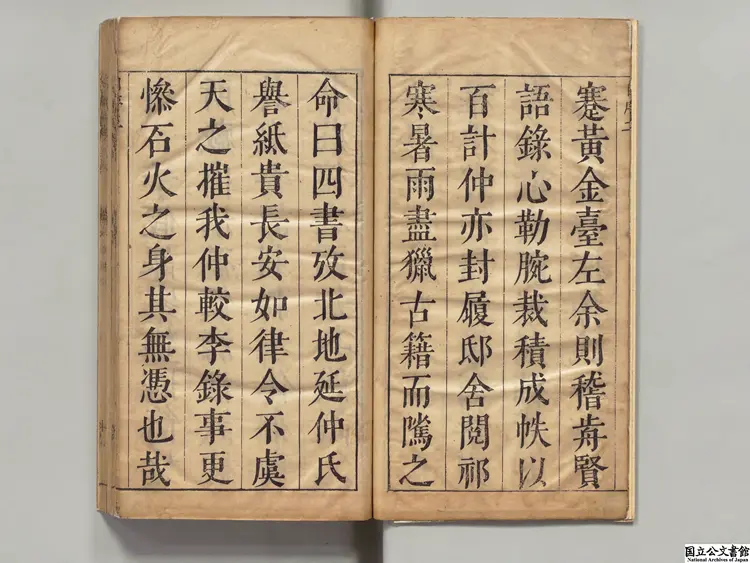 蹇黃金臺左余則稽前賢
語錄心勒腕裁積成帙以
百計仲亦封履邸舍閱祁
寒暑雨盡獵古籍而隲之
命曰四書攷北地延仲氏
譽紙貴長安如律令不虞
天之摧我仲較李錄事更
慘石火之身其無憑也哉
国立公文書館
National Archives of Japan